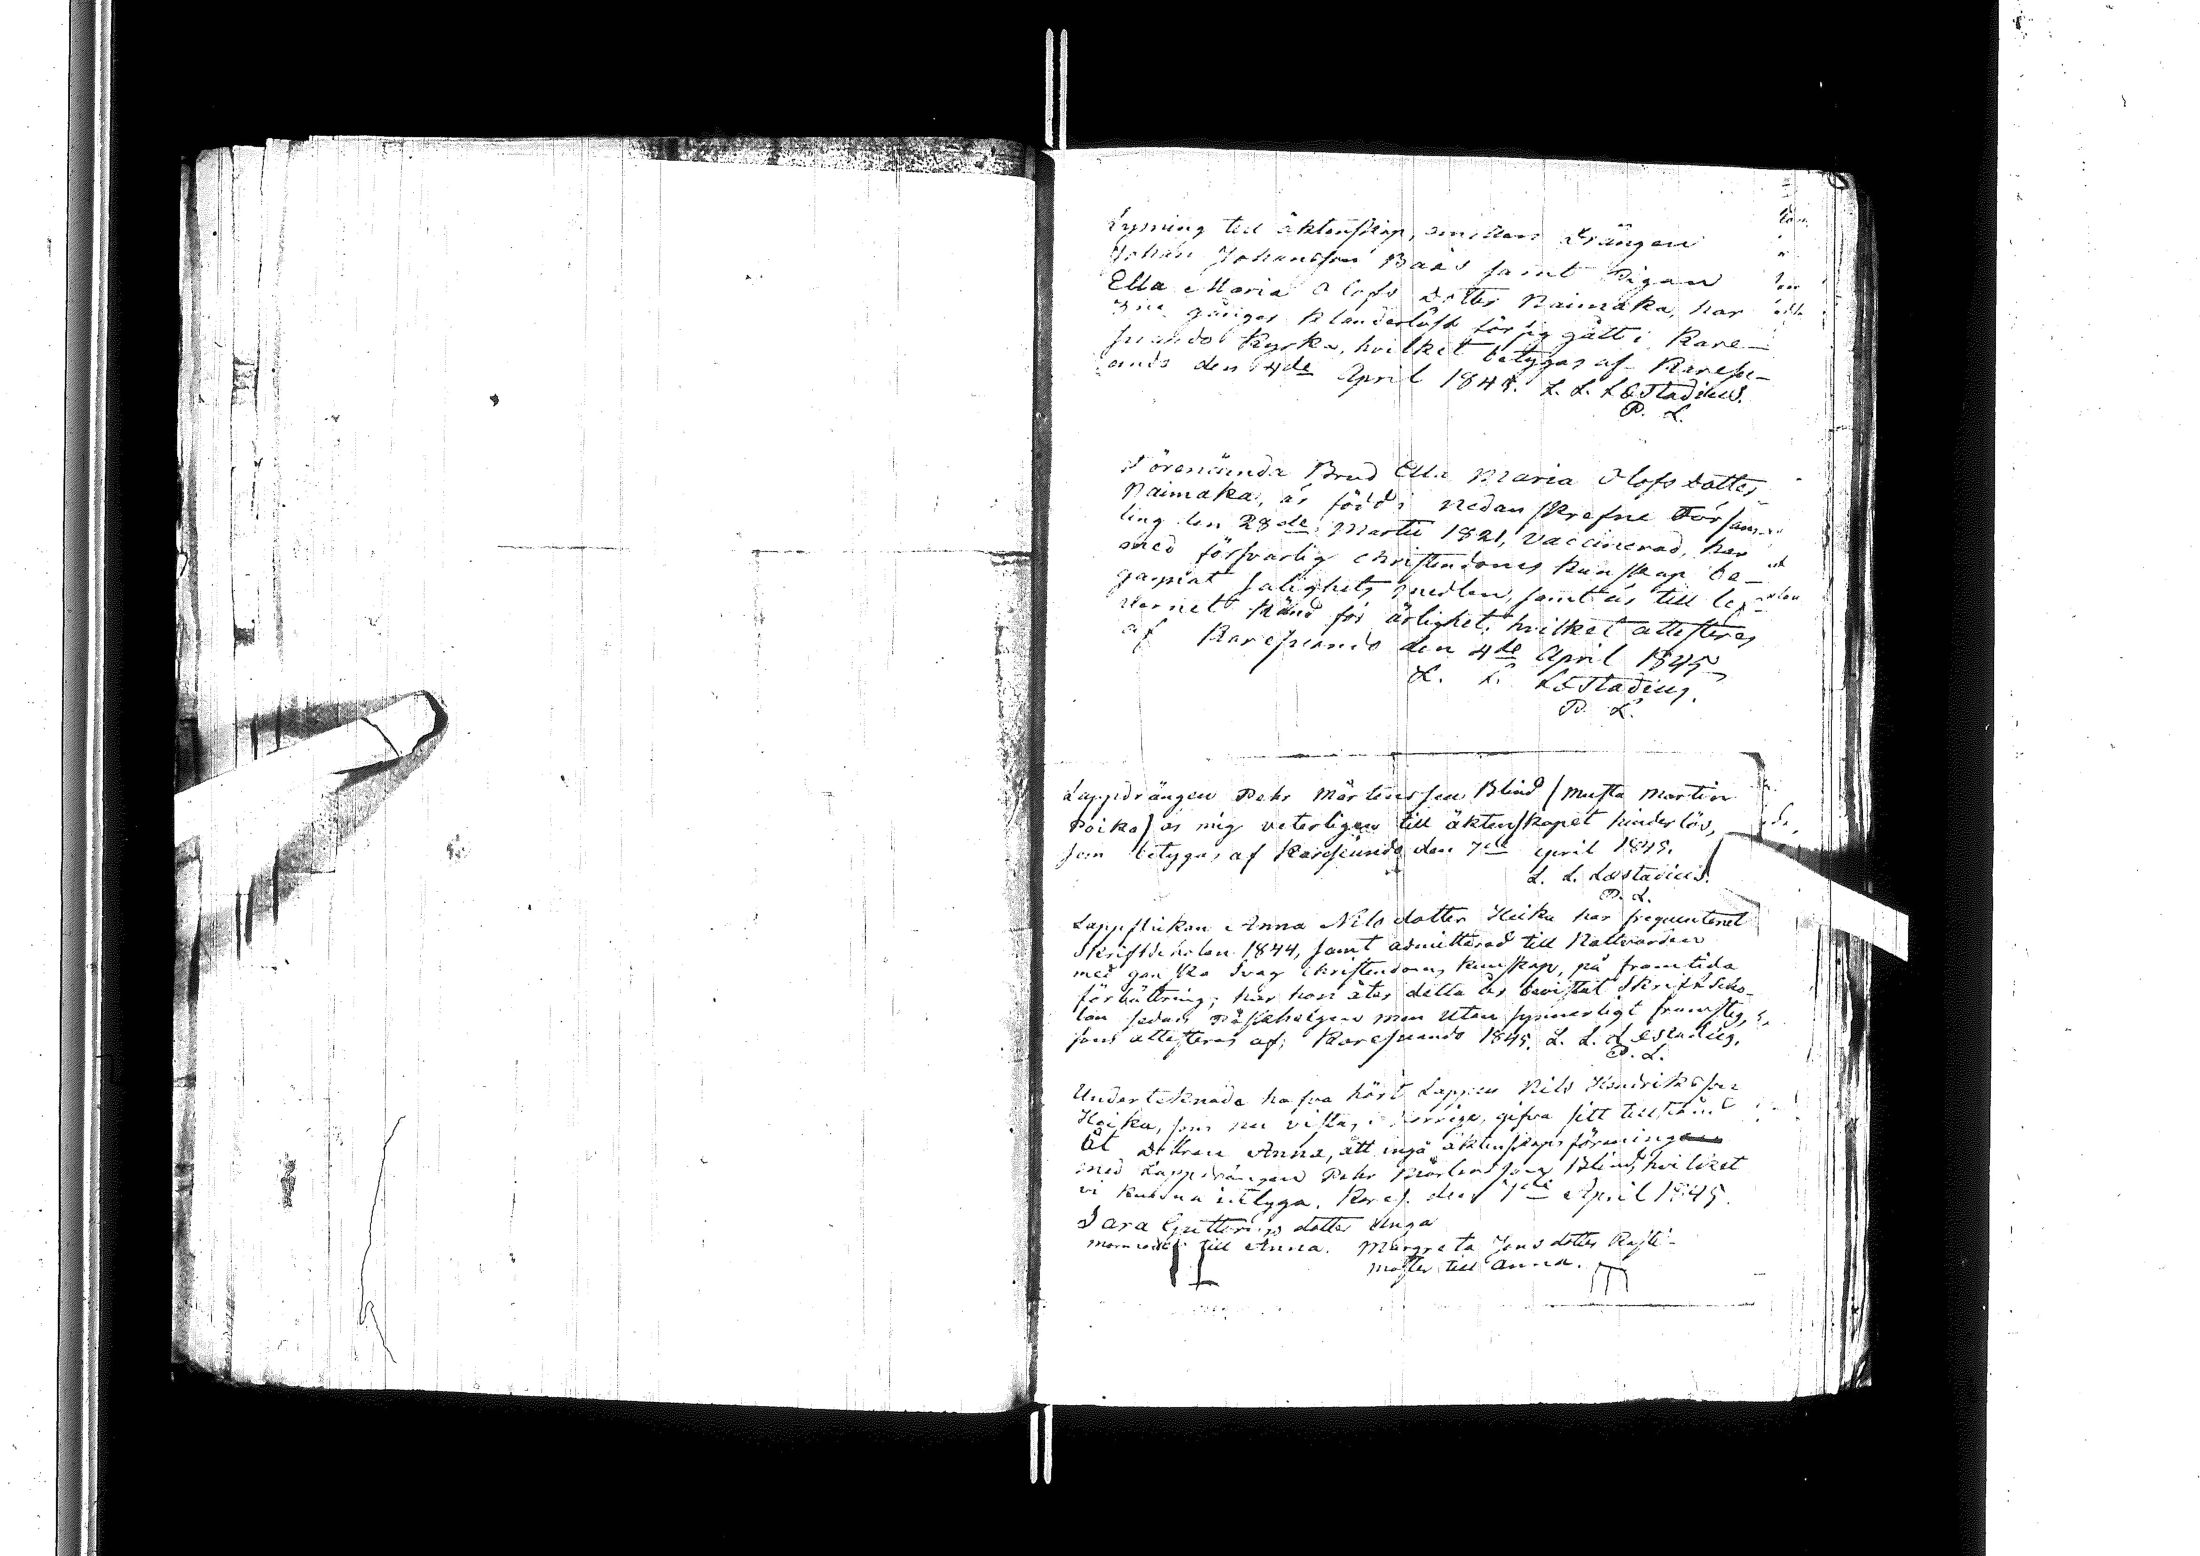 Lysning till äktenskap, emellan Drängen
Johan Johansson Baas samt Pigan
Ella Maria Olofs dotter Naimaka, har
3ne gånger klanderlöst försiggått i Kare-
suando Kyrka, hvilket betygas af Karesu-
ando den 4de April 1845. L. L. Læstadius.
P. L.
Förenämnda Brud Ella Maria Olofs dotter
Naimaka, är född i nedanskrefne Försam-
ling den 28de Martii 1821, vaccinerad, har
med försvarlig christendoms kunskap be-
gagnat salighets medlen, samt är till lef-
vernet känd för ärlighet, hvilket attesteras
af Karesuando den 4de April 1845
L. L. Læstadius.
P. L.
Lappdrängen Pehr Mårtensson Blind (Musta Martin
Poika) är mig veterligen till äktenskapet hinderlös,
som betygas af Karesuando den 7de april 1845.
L. L. Læstadius.
P. L.
Lappflickan Anna Nils dotter Heika har frequenterat
Skriftscholan 1844, samt admitterad till Nattvarden
med ganska svag christendoms kunskap, på framtida
förbättring; har hon åter detta år bevistat Skriftscho-
lan sedan Påskhelgen men utan synnerligt framsteg,
som attesteras af; Karesuando 1845. L. L. Læstadius.
P. L.
Undertecknade hafva hört Lappen Nils Hendriksson
Heika, som nu vistas i Norrige, gifva sitt tillstånd
åt Dottren Anna, att ingå äktenskaps förening
med Lappdrängen Pehr Mårtensson Blind, hvilket
vi kunna intyga. Kares. den 7de April 1845.
Sara Guttorms dotter Unga
mormoder till Anna. Margreta Jons dotter Rasti-
moster till Anna.